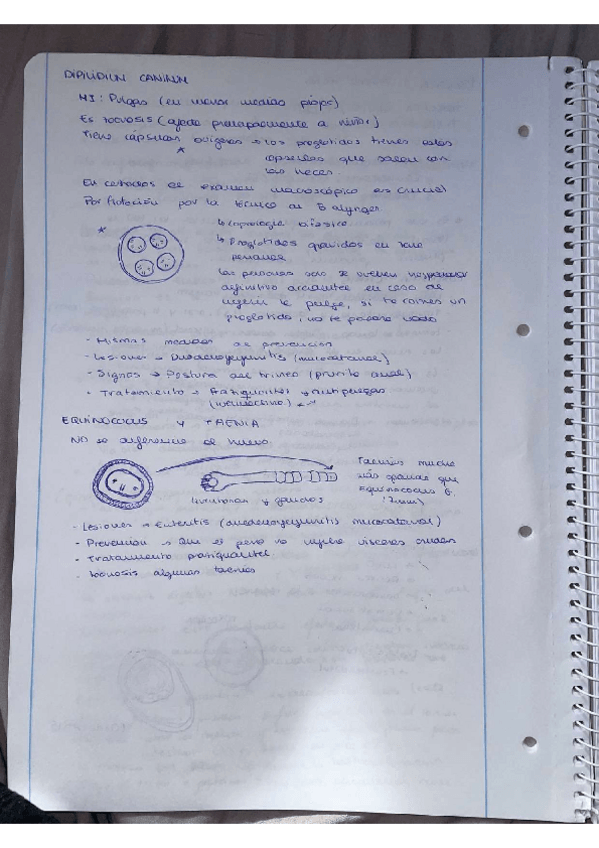 DIPILIDIUM CANINUM
HI: Pulgas (en menor medida piojos)
Es zoonosis (afecta principalmente a niños)
Tiene cápsulas ovígeras → los proglótidos tienen estas
* cápsulas que salen con
las heces
En cestodos el examen macroscópico es crucial
Por flotación por la técnica de
* ↳ Coprología
↳ Proglótidos grávidos en zona
perianal
Las personas solo se vuelven hospedador
definitivo accidental en caso de
ingerir la pulga, si te comes un
proglótido, no te pasará nada
- Mismas medidas de prevención
- Lesiones → Duodenoyeyunitis (mucocatarral)
- Signos → Postura del trineo (prurito anal)
- Tratamiento → Praziquantel y antipulgas
EQUINOCOCUS Y TAENIA
NO se diferencia el huevo
Taenias mucho
más grandes que
Equinococus
Invaginan y ganchos
- Lesiones → Enteritis (duodenoyeyunitis mucocatarral)
- Prevención → Que el perro no ingiera vísceras crudas
- Tratamiento praziquantel
- Zoonosis algunas taenias